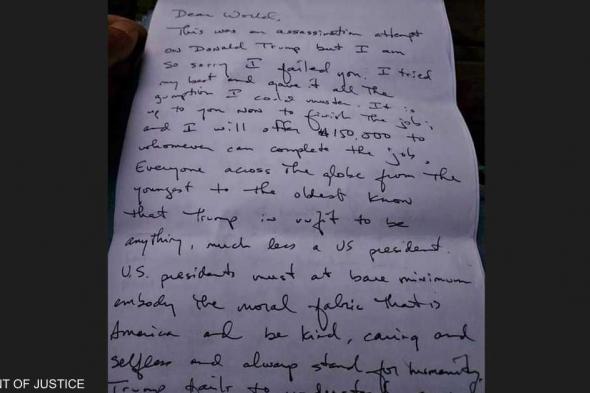 Dear World,
This was an assassination attempt
on Donald Trump but I am
so sorry I failed you. I tried
my best and gave it all the
gumption I could muster. It is
up to you now to finish the job;
and I will offer $150,000 to
whomever can complete the job.
Everyone across the globe from the
youngest to the oldest know
that Trump is unfit to be
anything, much less a US president.
U.S. presidents must at bare minimum
embody the moral fabric that is
America and be kind, caring and
selfless and always stand for humanity.
Trump fails to understand
NT OF JUSTICE